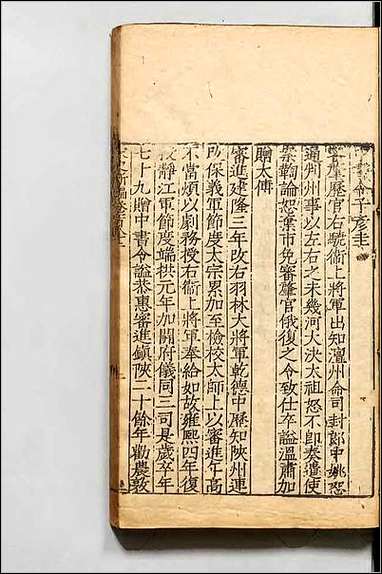 中書令子彥圭
審肇歷官右驍衛上將軍出知澶州命司封郎中姚恕
通判州事以左右之未幾河大決太祖怒不即奏遣使
案鞫論恕棄市免審肇官俄復之令致仕卒謚溫肅加
贈太傅
審進建隆三年改右羽林大將軍乾德中歷知陝州連
所保義軍節度太宗累加至檢校太師上以審進年高
不當煩以劇務授右衛上將軍奉給如故雍熙四年復
授靜江軍節度端拱元年加開府儀同三司是歲卒年
七十九贈中書令謚恭惠審進鎮陝二十餘年勸農敦